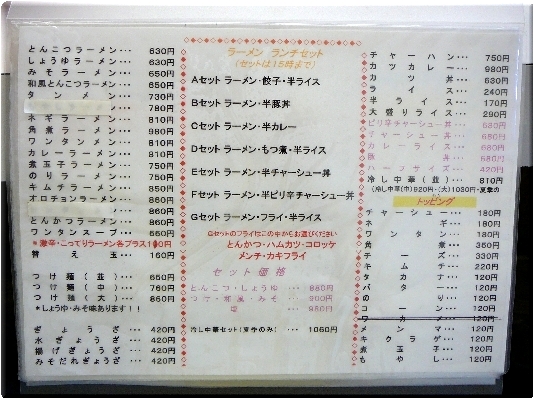 とんこつラーメン･･･ 630円
しょうゆラーメン･･･ 630円
みそラーメン･･･ 650円
和風とんこつラーメン･･･ 650円
タンメン･･･ 730円
780円
ネギラーメン･･･ 810円
角煮ラーメン･･･ 980円
ワンタンメン･･･ 810円
カレーラーメン･･･ 810円
煮玉子ラーメン･･･ 750円
のりラーメン･･･ 750円
キムチラーメン･･･ 850円
オロチョンラーメン･･･ 860円
とんかつラーメン･･･ 860円
ワンタンスープ･･･
*激辛・こってりラーメン各プラス100円
替え玉･･･ 160円
つけ麺(並)･･･ 650円
つけ麺(中)･･･ 760円
つけ麺(大)･･･ 860円
*しょうゆ・みそ味あります!!
ぎょうざ･･･ 420円
水ぎょうざ･･･ 420円
揚げぎょうざ･･･ 420円
みそだれぎょうざ･･･ 420円
ラーメン ランチセット
(セットは15時まで)
Aセット ラーメン・餃子・半ライス
Bセット ラーメン・半豚丼
Cセット ラーメン・半カレー
Dセット ラーメン・もつ煮・半ライス
Eセット ラーメン・半チャーシュー丼
Fセット ラーメン・半ピリ辛チャーシュー丼
Gセット ラーメン・フライ・半ライス
Gセットのフライはこの中からお選びください
とんかつ・ハムカツ・コロッケ
メンチ・カキフライ
セット価格
とんこつ・しょうゆ･･･ 880円
つけ・和風・みそ･･･ 900円
塩･･･ 980円
冷し中華セット(夏季のみ)･･･ 1060円
チャーハン･･･ 750円
カツカレー･･･ 980円
カツ丼･･･ 630円
ライス･･･ 240円
半ライス･･･ 170円
大盛りライス･･･ 290円
ピリ辛チャーシュー丼･･･ 630円
チャーシュー丼･･･ 680円
カレーライス･･･ 680円
豚丼･･･ 680円
ハーフサイズ･･･ 420円
冷し中華(並)･･･ 810円
(冷し中華(中)920円・(大)1030円・夏季の
トッピング
チャーシュー･･･ 180円
ネギ･･･ 180円
ワンタン･･･ 180円
角煮･･･ 350円
チーズ･･･ 330円
キムチ･･･ 220円
タカナ･･･ 120円
バター･･･ 120円
のり･･･ 120円
コーン･･･ 120円
ワカメ･･･ 120円
メンマ･･･ 120円
キクラゲ･･･ 120円
煮玉子･･･ 120円
もやし･･･ 120円